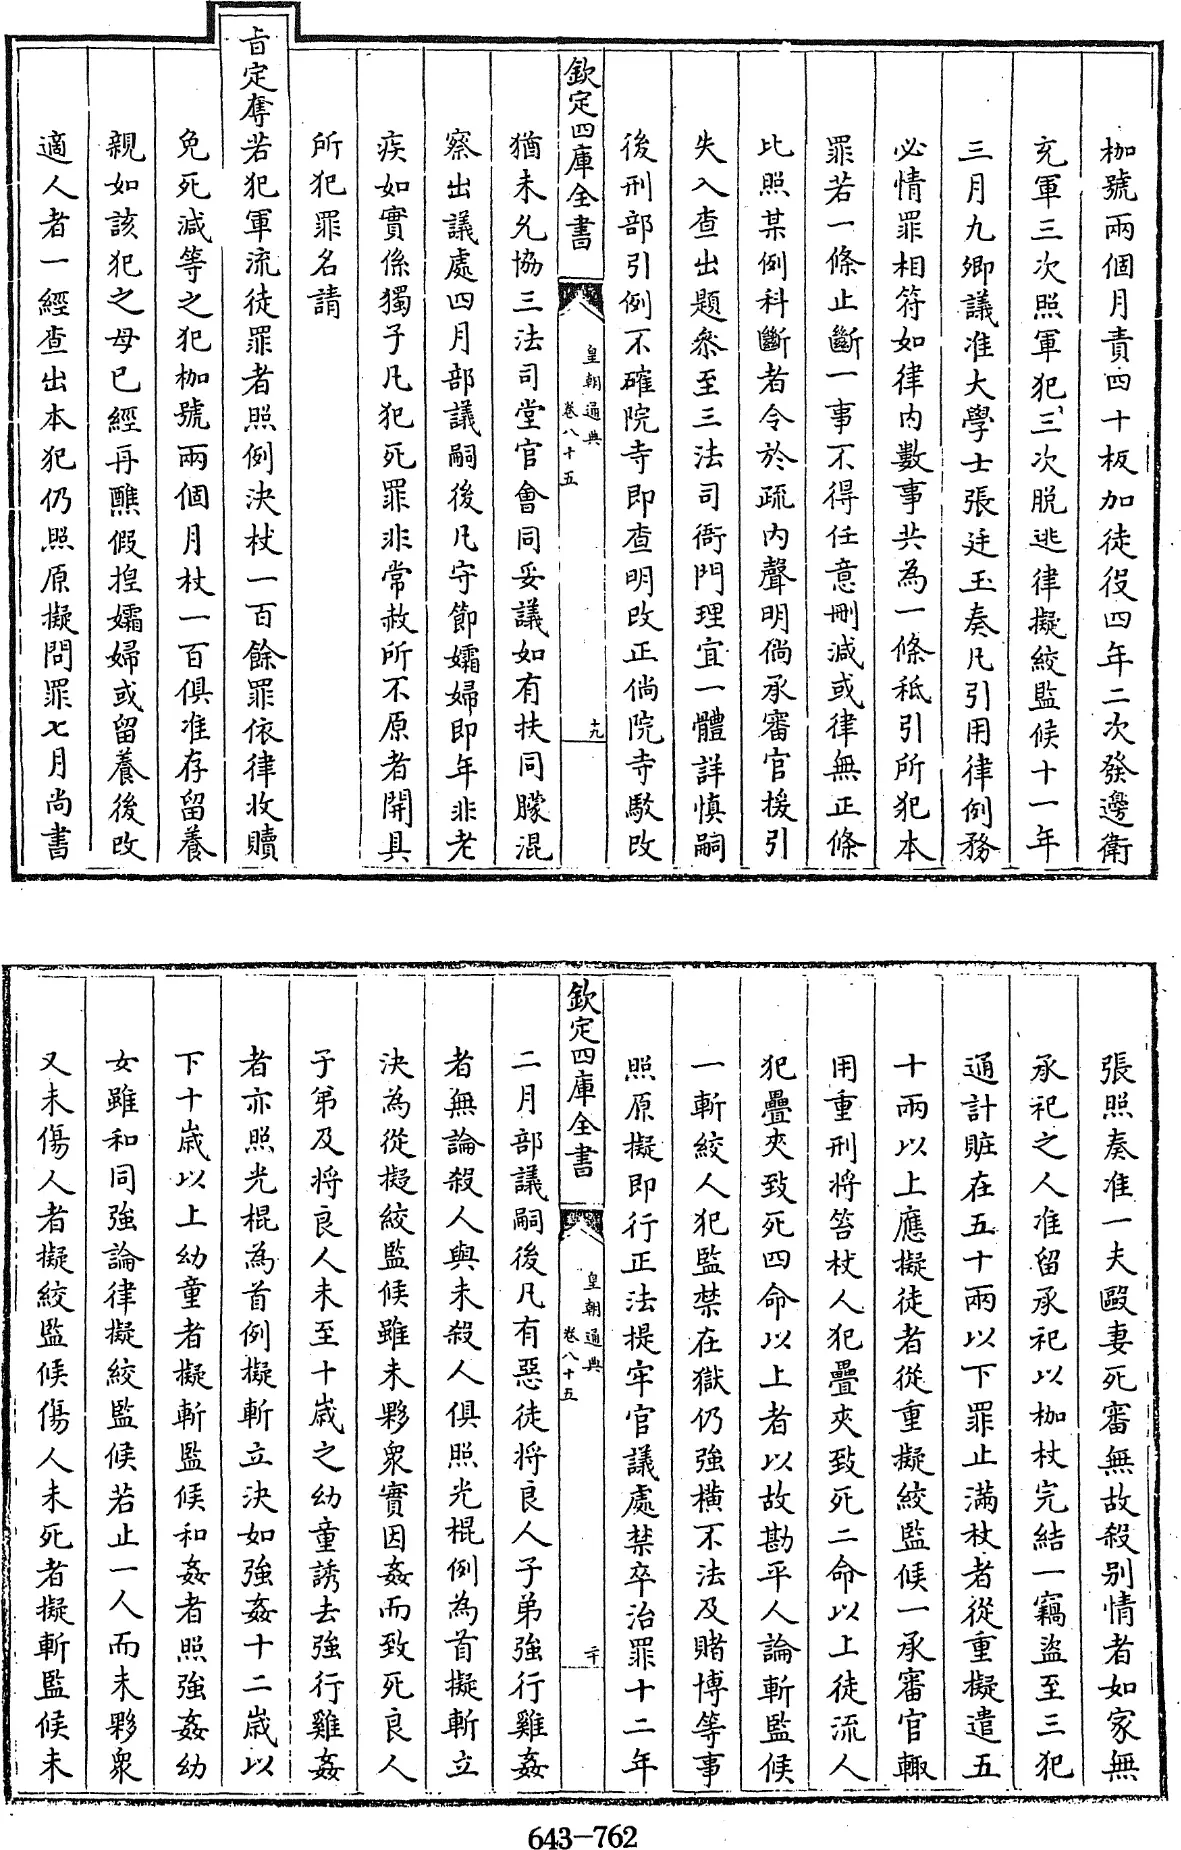 枷號兩個月責四十板加徒役四年二次發邊衛
充軍三次照軍犯三次脱逃律擬絞監候十一年
三月九卿議准大學士張廷玉奏凡引用律例務
必情罪相符如律内數事共為一條秪引所犯本
罪若一條止斷一事不得任意刪減或律無正條
比照某例科斷者令於疏内聲明倘承審官援引
失入查出題叅至三法司衙門理宜一體詳慎嗣
後刑部引例不確院寺即查明改正倘院寺駁改
欽定四庫全書
皇朝通典
卷八十五
十九
猶未允協三法司堂官會同妥議如有扶同朦混
察出議處四月部議嗣後凡守節孀婦即年非老
疾如實係獨子凡犯死罪非常赦所不原者開具
所犯罪名請
旨定奪若犯軍流徒罪者照例決杖一百餘罪依律收贖
免死減等之犯枷號兩個月杖一百俱准存留養
親如該犯之母已經再醮假揑孀婦或留養後改
適人者一經查出本犯仍照原擬問罪七月尚書
張照奏准一夫毆妻死審無故殺别情者如家無
承祀之人准留承祀以枷杖完結一竊盜至三犯
通計賍在五十兩以下罪止滿杖者從重擬遣五
十兩以上應擬徒者從重擬絞監候一承審官輙
用重刑將笞杖人犯疊夾致死二命以上徒流人
犯疊夾致死四命以上者以故勘平人論斬監候
一斬絞人犯監禁在獄仍強横不法及賭博等事
照原擬即行正法提牢官議處禁卒治罪十二年
欽定四庫全書
皇朝通典
卷八十五
二十
二月部議嗣後凡有惡徒將良人子弟強行雞姦
者無論殺人與未殺人俱照光棍例為首擬斬立
決為從擬絞監候雖未夥衆實因姦而致死良人
子弟及將良人未至十歲之幼童誘去強行雞姦
者亦照光棍為首例擬斬立決如強姦十二歲以
下十歲以上幼童者擬斬監候和姦者照強姦幼
女雖和同強論律擬絞監候若止一人而未夥衆
又未傷人者擬絞監候傷人未死者擬斬監候未
643—762